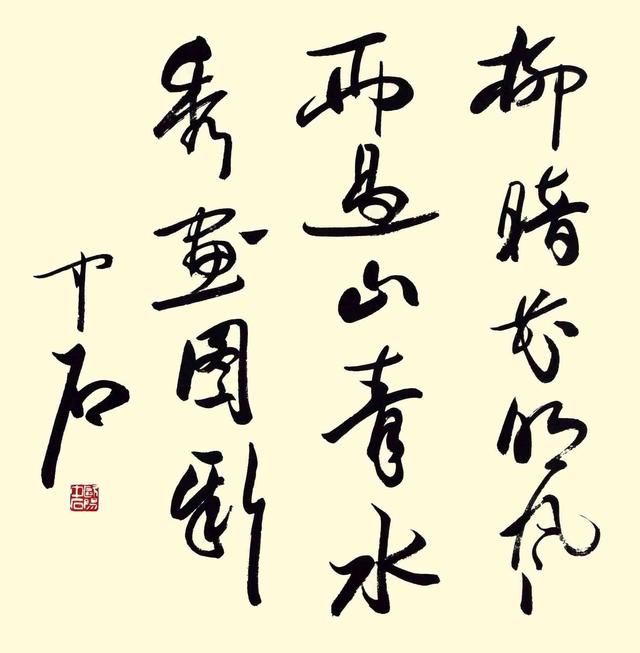 柳暗花明風
雨過山青水
秀畫圖新
中石
歐陽中石